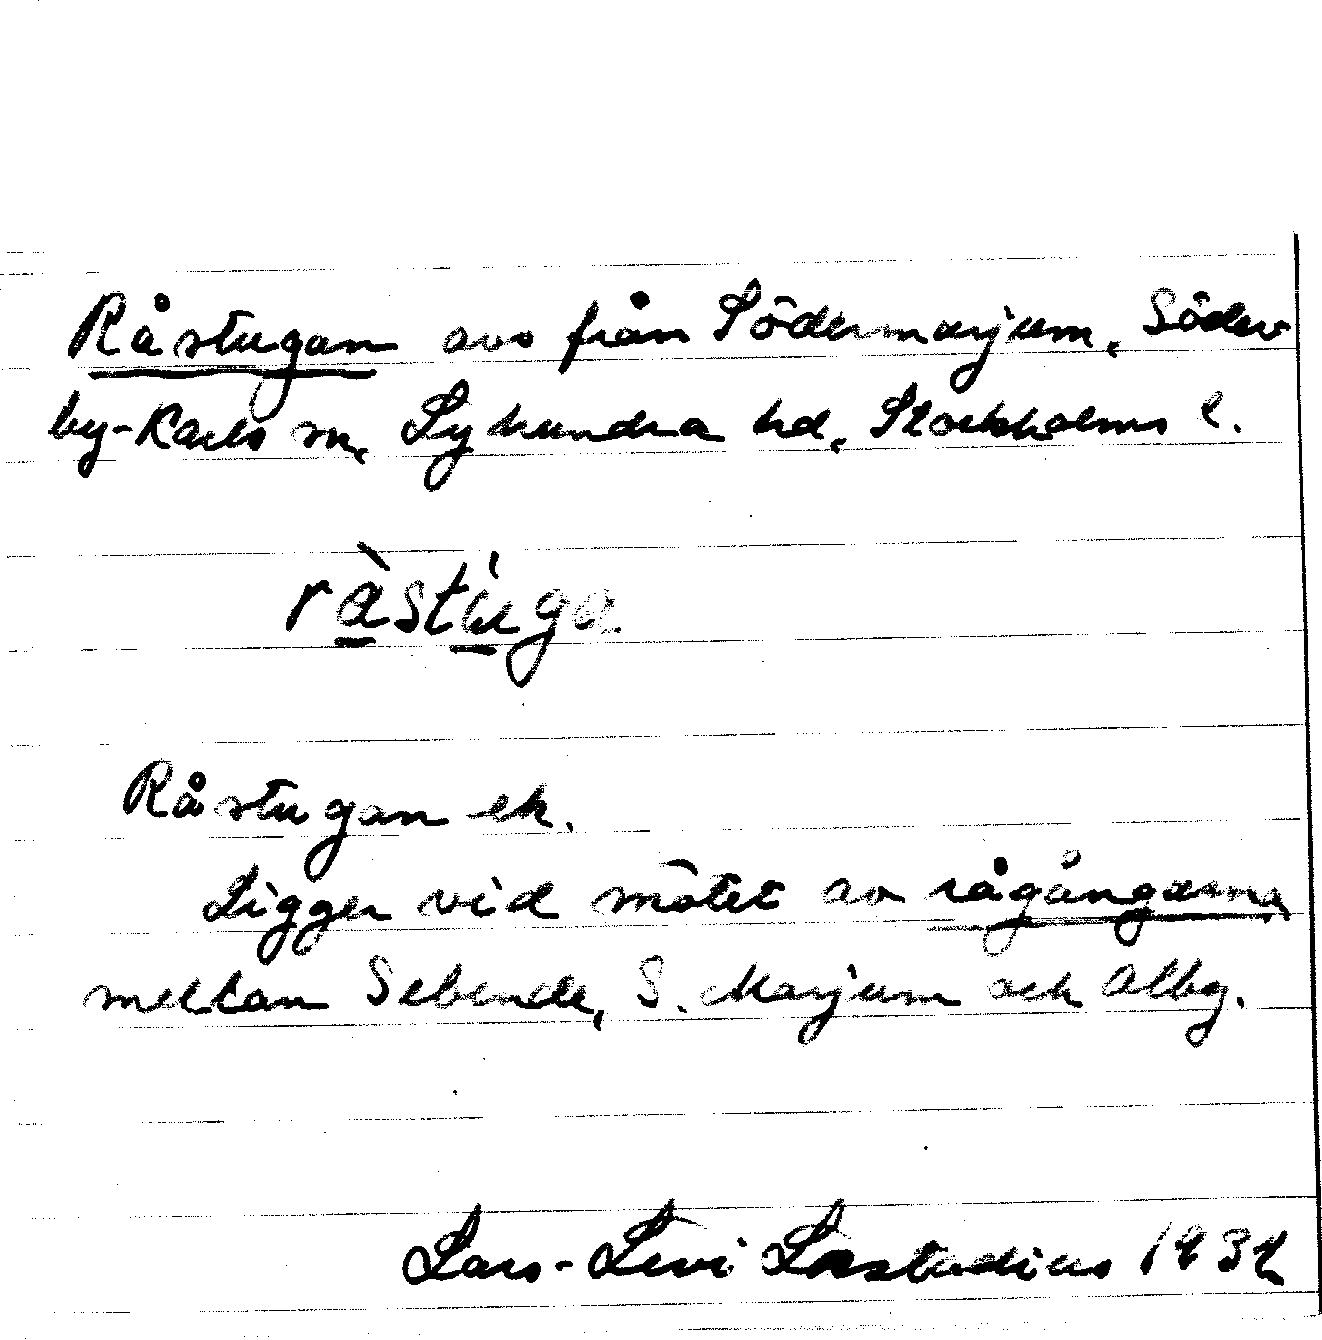 Råstugan avs från Södermarjum, Söder-
by-Karls sn, Lyhundra hd, Stockholms l.
råstúga
Råstugan ek.
Ligger vid mötet av rågångarna
mellan Sebende, S. Marjum och Alby.
Lars-Levi Læstadius